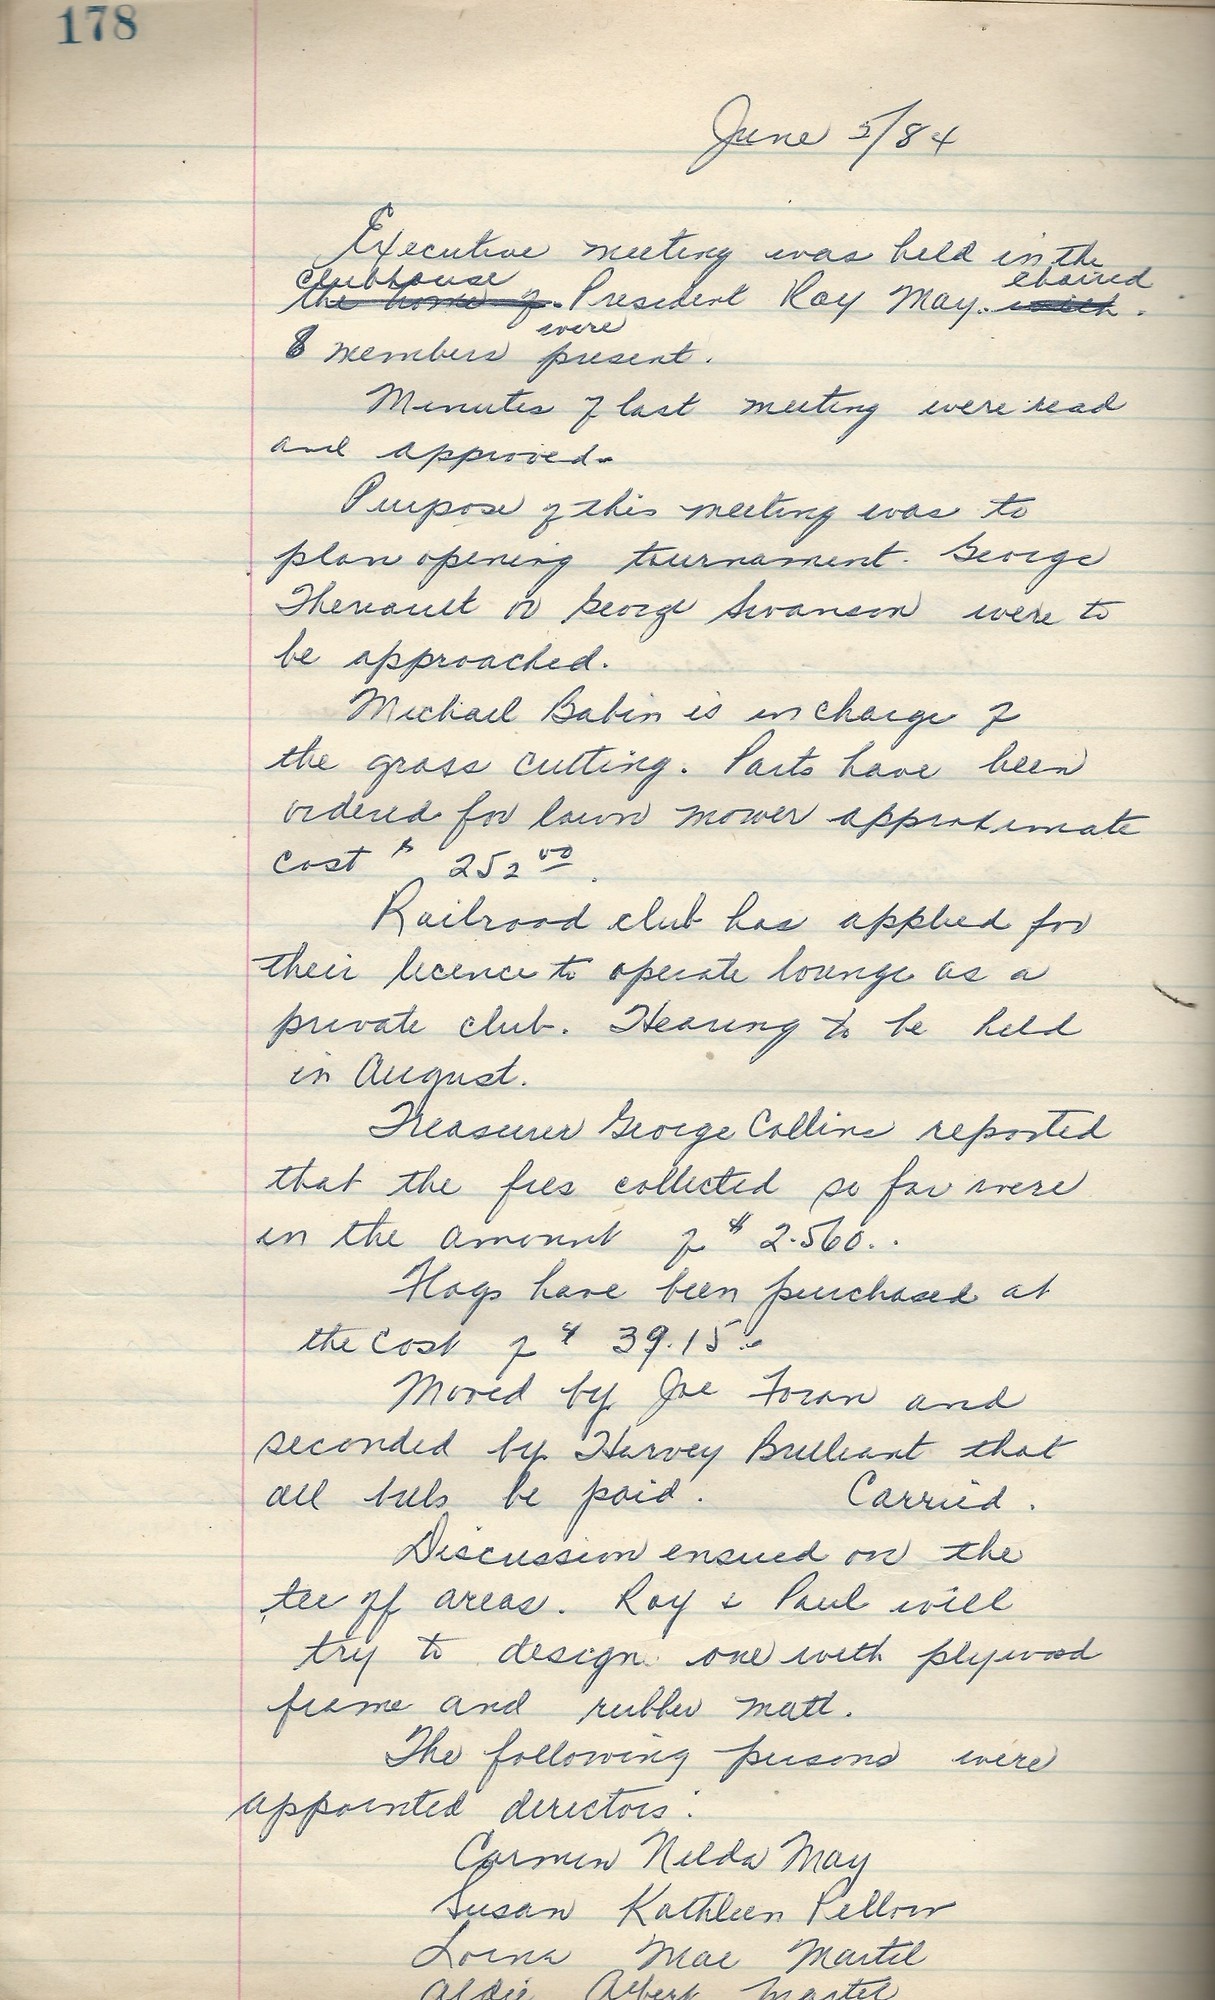 178
June 5/84
Executive meeting was held in the
clubhouse chaired
the home of. President Ray May. with.
were
8 members present.
Minutes of last meeting were read
and approved.
Purpose of this meeting was to
plan opening tournament. George
Theriault or George Swanson were to
be approached.
Michael Babin is in charge of
the grass cutting. Parts have been
ordered for lawn mower approximate
cost $ 252 00.
Railroad club has applied for
their licence to operate lounge as a
private club. Hearing to be held
in August.
Treasurer George Collins reported
that the fees collected so far were
in the amount of $ 2.560..
Flags have been purchased at
the cost of $ 39.15.
Moved by Joe Foran and
seconded by Harvey Brilliant that
all bills be paid. Carried.
Discussion ensued on the
tee off areas. Ray & Paul will
try to design one with plywood
frame and rubber matt.
The following persons were
appointed directors:
Carmen Nelda May
Susan Kathleen Pellow
Lorna Mae Martel
Aldie Albert Martel